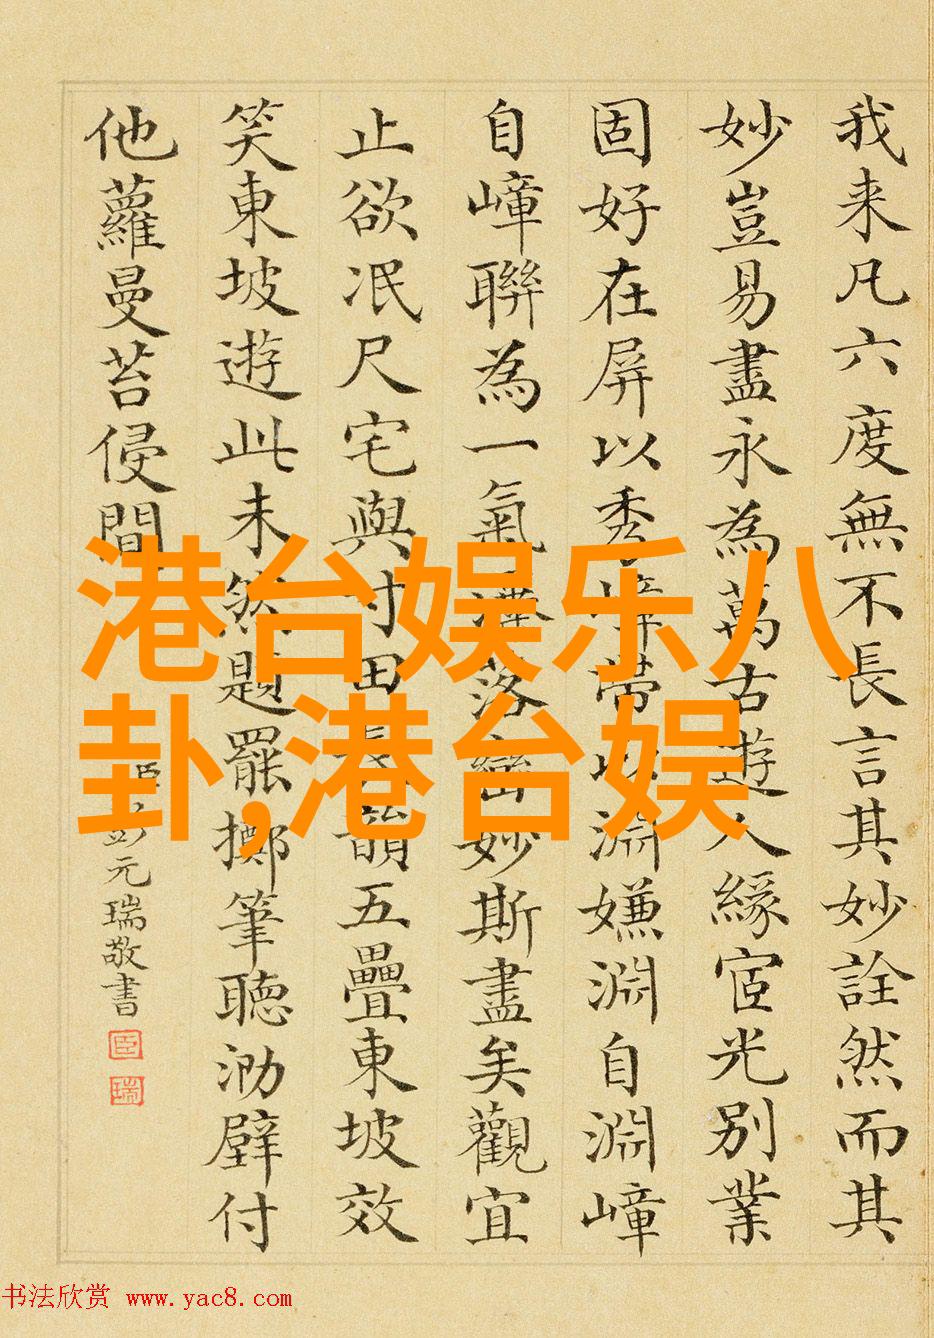 我来凡六度無不長言其妙詮然而其
妙豈易盡永為萬古遊人緣宧光別業
固好在屏以秀嶂帶以淵嫌淵自淵嶂
自嶂聯為一氣灌落巒妙斯盡矣觀宜
止欲泯尺宅與寸田長韻五疊東坡效
笑東坡遊此未然題罷擲筆聽泐壁付
他蘿曼苔侵間
臣彭元瑞敬書
臣
瑞
港台娱乐八
卦,港台娱
书法欣赏 www.yac8.com